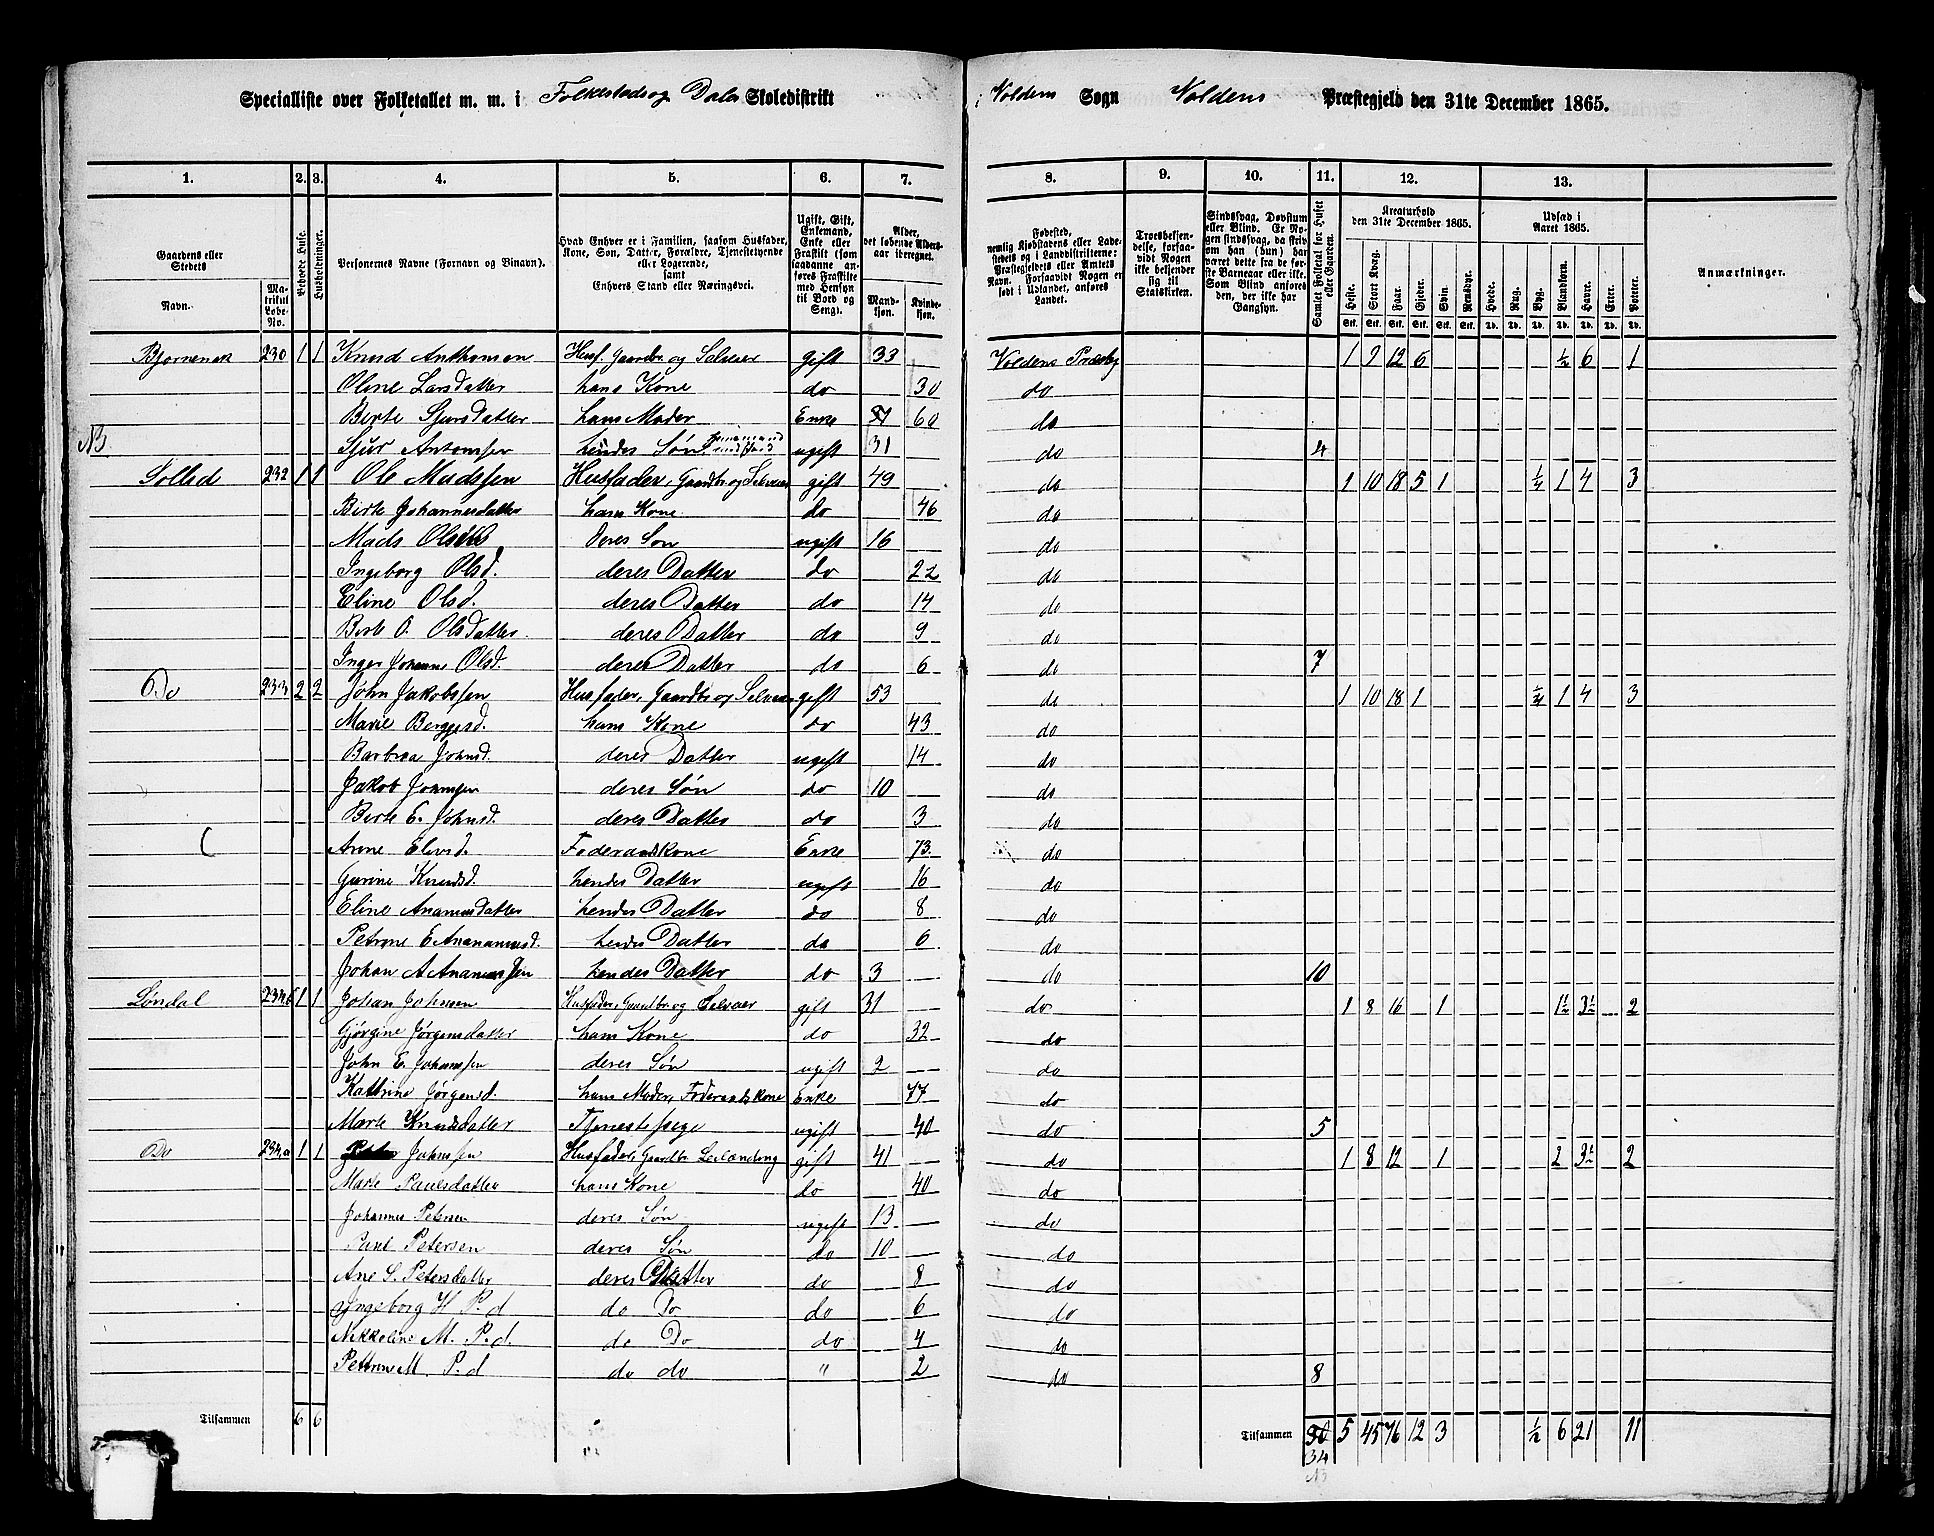 Specialliste over Folketallet m. m. i Folkestadsog Dales Skoledistrikt i Voldens Sogn Voldens Præstegjeld den 31te December 1865.
1. 2. 3. 4. 5. 6. 7. 8. 9. 10. 11. 12. 13.
Gaardens eller Stedets
Navn.
Matrikul Løbe-No.
Bebyede Huse.
Husholdninger.
Personernes Navne (Fornavn og Binavn).
Hvad Enhver er i Familien, saasom Husfader, Kone, Søn, Datter, Forældre, Tjenestetyende eller Logerende, samt Enhvers Stand eller Næringsvei.
Ugift, Gift, Enkemand, Enke eller Fraskilt (som saadanne anføres Fraskilte med Hensyn til Bord og Seng).
Alder, det løbende Aldersaar iberegnet.
Mandkjøn. Kvindekjøn.
Fødested, nemlig Kjøbstadens eller Ladestedets og i Landdistrikterne: Præstegjeldets eller Amtets Navn. Forsaavidt Nogen er født i Udlandet, anføres Landet.
Troesbekjendelse, forsaavidt Nogen ikke bekjender sig til Statskirken.
Sindssvag, Døvstum eller Blind. Er Nogen sindssvag, da skrives om han (hun) har været dette fra de første Barneaar eller ikke. Som Blind anføres den, der ikke har Gangsyn.
Samlet Folketal for Huset eller Gaarden.
Kreaturhold den 31te December 1865.
Heste. Stort Kvæg. Faar. Gjeder. Svin. Rensdyr.
Udsæd i Aaret 1865.
Hvede. Rug. Byg. Blandkorn. Havre. Erter. Poteter.
Anmærkninger.
230 1 1 Knud Anthonsen Husf. Gaardbr og Selveier gift 33 Voldens Præstg 1 9 12 6 ½ 6 1
Oline Larsdatter hans Kone do 30 do
Berte Sjursdatter hans Moder Enke 60 do
NB
Sjur Antonsen hendes Søn ugift 31 do 4
232 1 1 Ole Madssen Husfader, Gaardbr og Selveier gift 49 do 1 10 18 5 1 ¼ 1 4 3
Birte Johannesdatter hans Kone do 46 do
Mads deres Søn ugift 16 do
Ingeborg Olsd. deres Datter do 22 do
Eline Olsd. deres Datter do 14 do
Berte O. Olsdatter. deres Datter do 9 do
Inger Johanne Olsd. deres Datter do 6 do 7
Do 233 2 2 John Jakobssen Husfader, Gaardbr og Selveier gift 53 do 1 10 18 1 ¼ 1 4 3
Marie Berggesd. hans Kone do 43 do
Barbraa Johnsd. deres Datter ugift 14 do
Jakob Johnssen deres Søn do 10 do
Berte E. Johnsd. deres Datter do 3 do
Anne Elevsd. Føderaadskone Enke 73. do
Gurine Knudsd. hendes Datter ugift 16 do
Eline Ananiasdatter hendes Datter do 8 do
Petrine E Ananiasd. hendes Datter do 6 do
Johan A Ananiassen hendes Datter do 3 do 10
Løndal 234b 1 1 Johan Johnsen Husfader, Gaardbr og Selveier gift 31 do 1 8 16 1 1½ 3½ 2
Gjørgine Jørgensdatter hans Kone do 32 do
John E. Johanssen deres Søn ugift 2 do
Kathrine Jørgensd. hans Moder, Føderaadskone Enke 77 do
Marte Knudsdatter Tjenestepige ugift 40 do 5
Do 234a 1 1 Peter Johnssen Husfader, Gaardbr Leilænding gift 41 do 1 8 12 1 2 3½ 2
Marte Paulsdatter hans Kone do 40 do
Johannes Petersen deres Søn ugift 13 do
Paul Petersen deres Søn do 10 do
Ane S. Petersdatter deres Datter do 8 do
Ingeborg H P. d do Do do 6 do
Nikkoline M. P. d. do Do do 4 do
Petrine M. P. d do do " 2 do 8
Tilsammen 6 6 Tilsammen 30 5 45 76 12 3 ½ 6 21 11
34